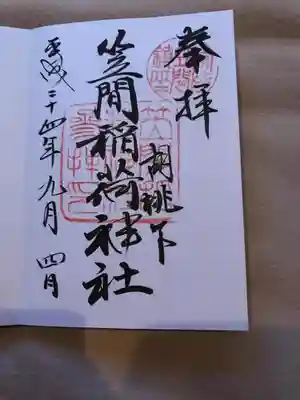 奉拝
胡桃下
笠間稲荷神社
平成二十四年九月四日